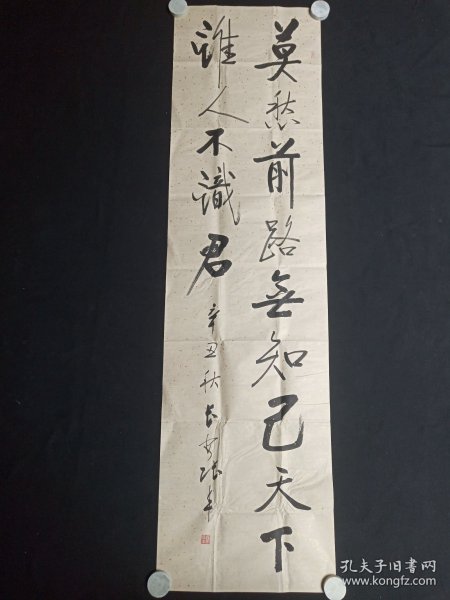 莫愁前路無知己天下
誰人不識君
辛丑秋長安張年
孔夫子旧书网
www.kongfz.com